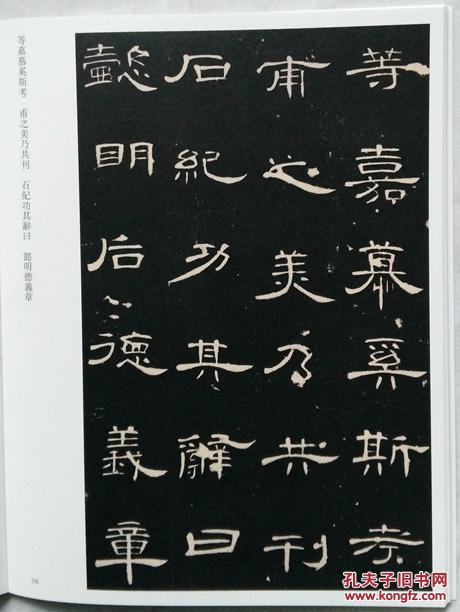 等嘉慕奚斯考
甫之美乃共刊
石紀功其辭曰
懿明后德義章
等嘉慕奚斯考　甫之美乃共刊　石紀功其辭曰　懿明德義章
36
孔夫子旧书网